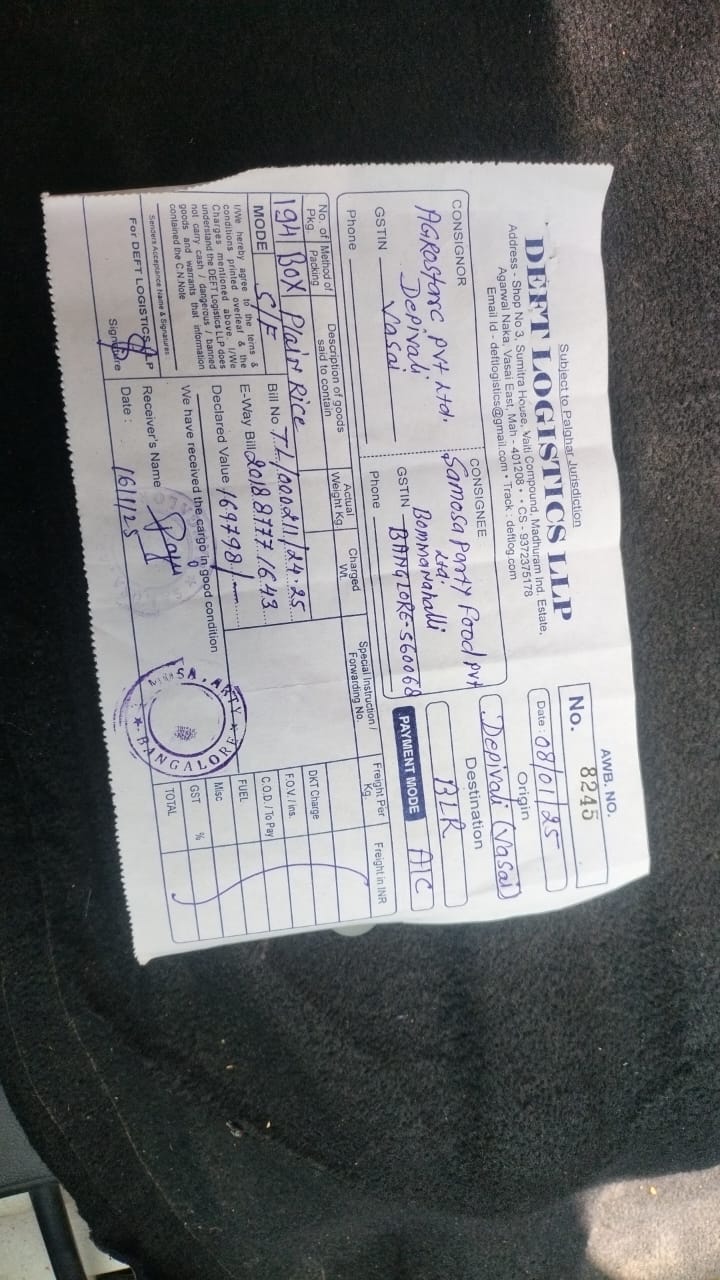 Subject to Palghar Jurisdiction
DEFT LOGISTICS LLP
Address - Shop No 3, Sumitra House, Vaiti Compound, Madhuram Ind. Estate,
Agarwal Naka, Vasai East, Mah - 401208 • • CS - 9372375178
Email Id - deftlogistics@gmail.com • Track : deftlog.com
AWB. NO.
No. 8245
Date : 08/01/25
Origin
Depivali (Vasai)
Destination
BLR
PAYMENT MODE A/C
CONSIGNOR
AGROstarc, Pvt Ltd,
Depivali
Vasai
GSTIN
Phone
CONSIGNEE
Samosa Party Food Pvt
Ltd.
Bommanahalli
GSTIN BANGLORE-560068
Phone
No. of Pkg.
Method of Packing
Description of goods said to contain
Actual Weight Kg.
Charged Wt.
Special Instruction / Forwarding No.
Freight Per Kg.
Freight in INR
194 BOX Plain Rice
DKT Charge
F.O.V. / Ins.
C.O.D. / To Pay
FUEL
Misc
GST %
TOTAL
MODE S/F
Bill No T.L/000211/24-25
E-Way Bill 201887771643
Declared Value 169798/
I/We hereby agree to the terms &
conditions printed overleaf & the
Charges mentioned above. I/We
understand the DEFT Logistics LLP does
not carry cash / dangerous / banned
goods and warrants that information
contained the C.N.Note
We have received the cargo in good condition
Senders Acceptance Name & Signatures
For DEFT LOGISTICS LLP
Signature
Receiver's Name
Date : 16/1/25
BANGALORE